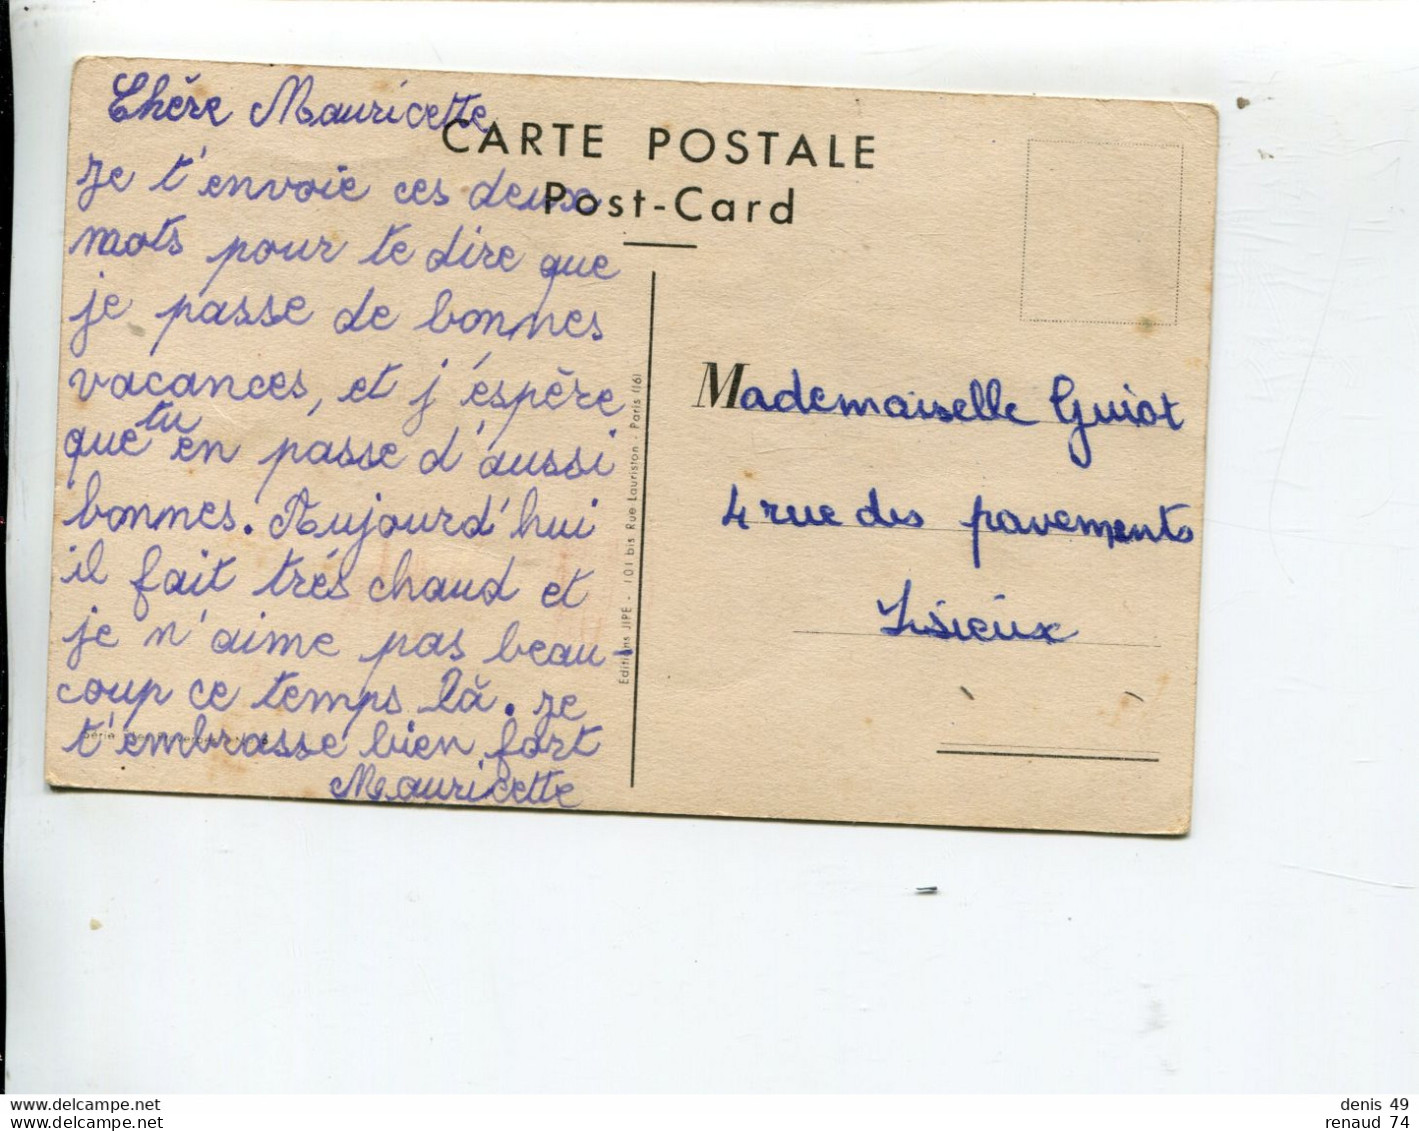 Chère Mauricette,
CARTE POSTALE
Post-Card
je t'envoie ces deux
mots pour te dire que
je passe de bonnes
vacances, et j'éspère
que tu en passe d'aussi
bonnes. Aujourd'hui
il fait très chaud et
je n'aime pas beau-
coup ce temps là. je
t'embrasse bien fort
Mauricette
Editions JIPÉ - 101 bis Rue Lauriston - Paris (16)
Mademoiselle Guiot
4 rue des pavements
Lisieux
Série
www.delcampe.net
www.delcampe.net
denis 49
renaud 74